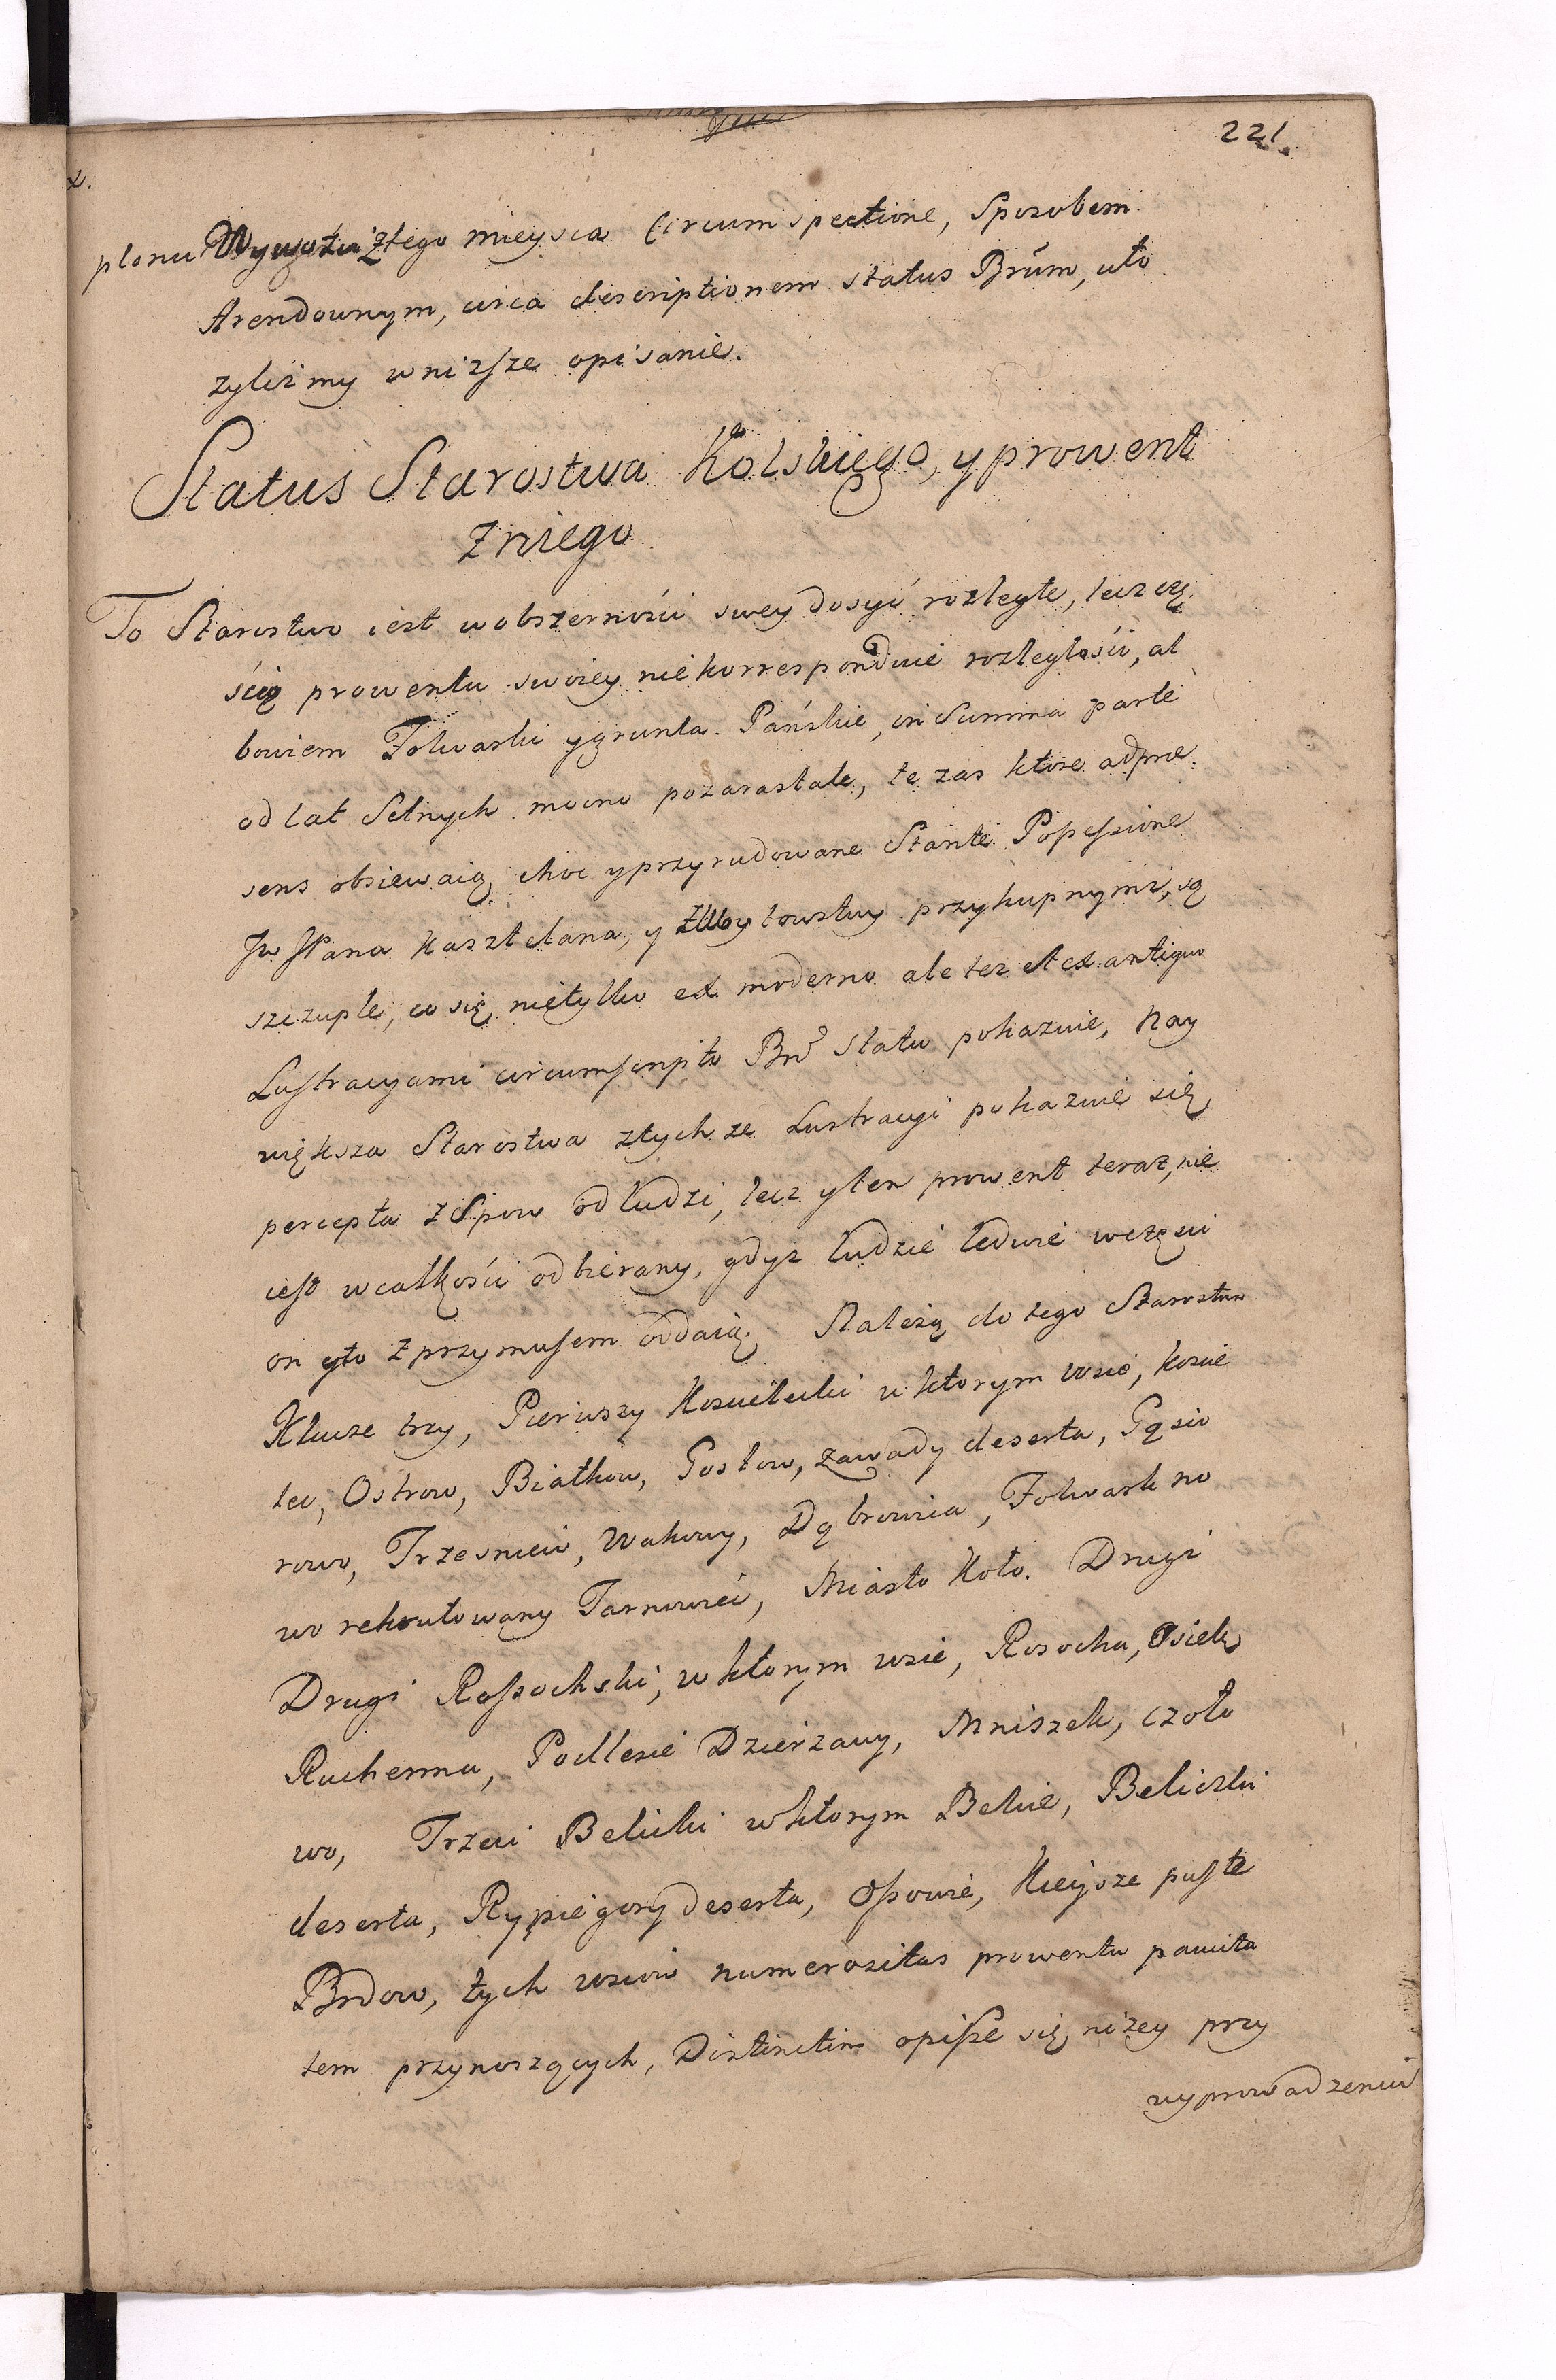 221.
planu Wywozu ztego mieysca Circumspectione, Sposobem
Arendownym, circa descriptionem status Brūm, uło
zylismy w nizsze opisanie.
Status Starostwa Kolskiego, y prowent
z niego
To Starostwo iest w obszernosći swey dosyć rozległe, lecz czę
ścią prowentu swoiey nie korresponduie rozległośći, al
bowiem Folwarki y grunta Pańskie, in Summa parte
od lat Setnych mocno pozarastałe, te zas ktore ad prae
sens obsiewaią, choc y przyrudowane Stante Possessione
Jw JPana Kasztelana, y z Woytowstwy przykupnymi, są
szczupłe, co się nietylko ex moderno ale tez et ex antiquo
Lustracyami circumscripto Brō statu pokazuie, Nay
większa Starostwa z tychze Lustracyi pokazuie się
percepta z Spow od Ludzi, lecz y ten prowent teraz, nie
iest w całkośći odbierany, gdyz Ludzie ledwie w częsci
on y to z przymusem oddaią. Należą do tego Starostwa
Klucze trzy, Pierwszy Koscielecki w ktorym wsie, Koscie
lec, Ostrow, Białkow, Gosłow, Zawady deserta, Gąsio
rowo, Trzesniew, Wakowy, Dąbrowica, Folwark no
wo rekrutowany Tarnowiec, Miasto Koło. Drugi
Drugi Rossochski, w ktorym wsie, Rosocha, Osiek,
Ruchenna, Podlesie Dzierzawy, Mniszek, Czoło
wo, Trzeci Belicki w ktorym Belcie, Beliczki
deserta, Rypie gory deserta, Ossowie, Kieysze puste
Brdow, tych wsiow numerositas prowentu paucita
tem przynoszących, Distinctim opisze się nizey przy
wyprowadzeniu